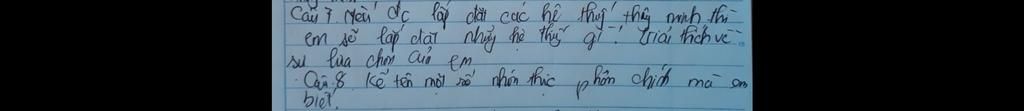 Câu 7. Nếu đc lắp đặt các hệ thuý thông minh thì
em sẽ lắp đặt những hệ thuý gì? Giải thích về
sự lựa chọn của em
Câu 8. Kể tên một số nhóm thực phẩm chính mà em
biết.